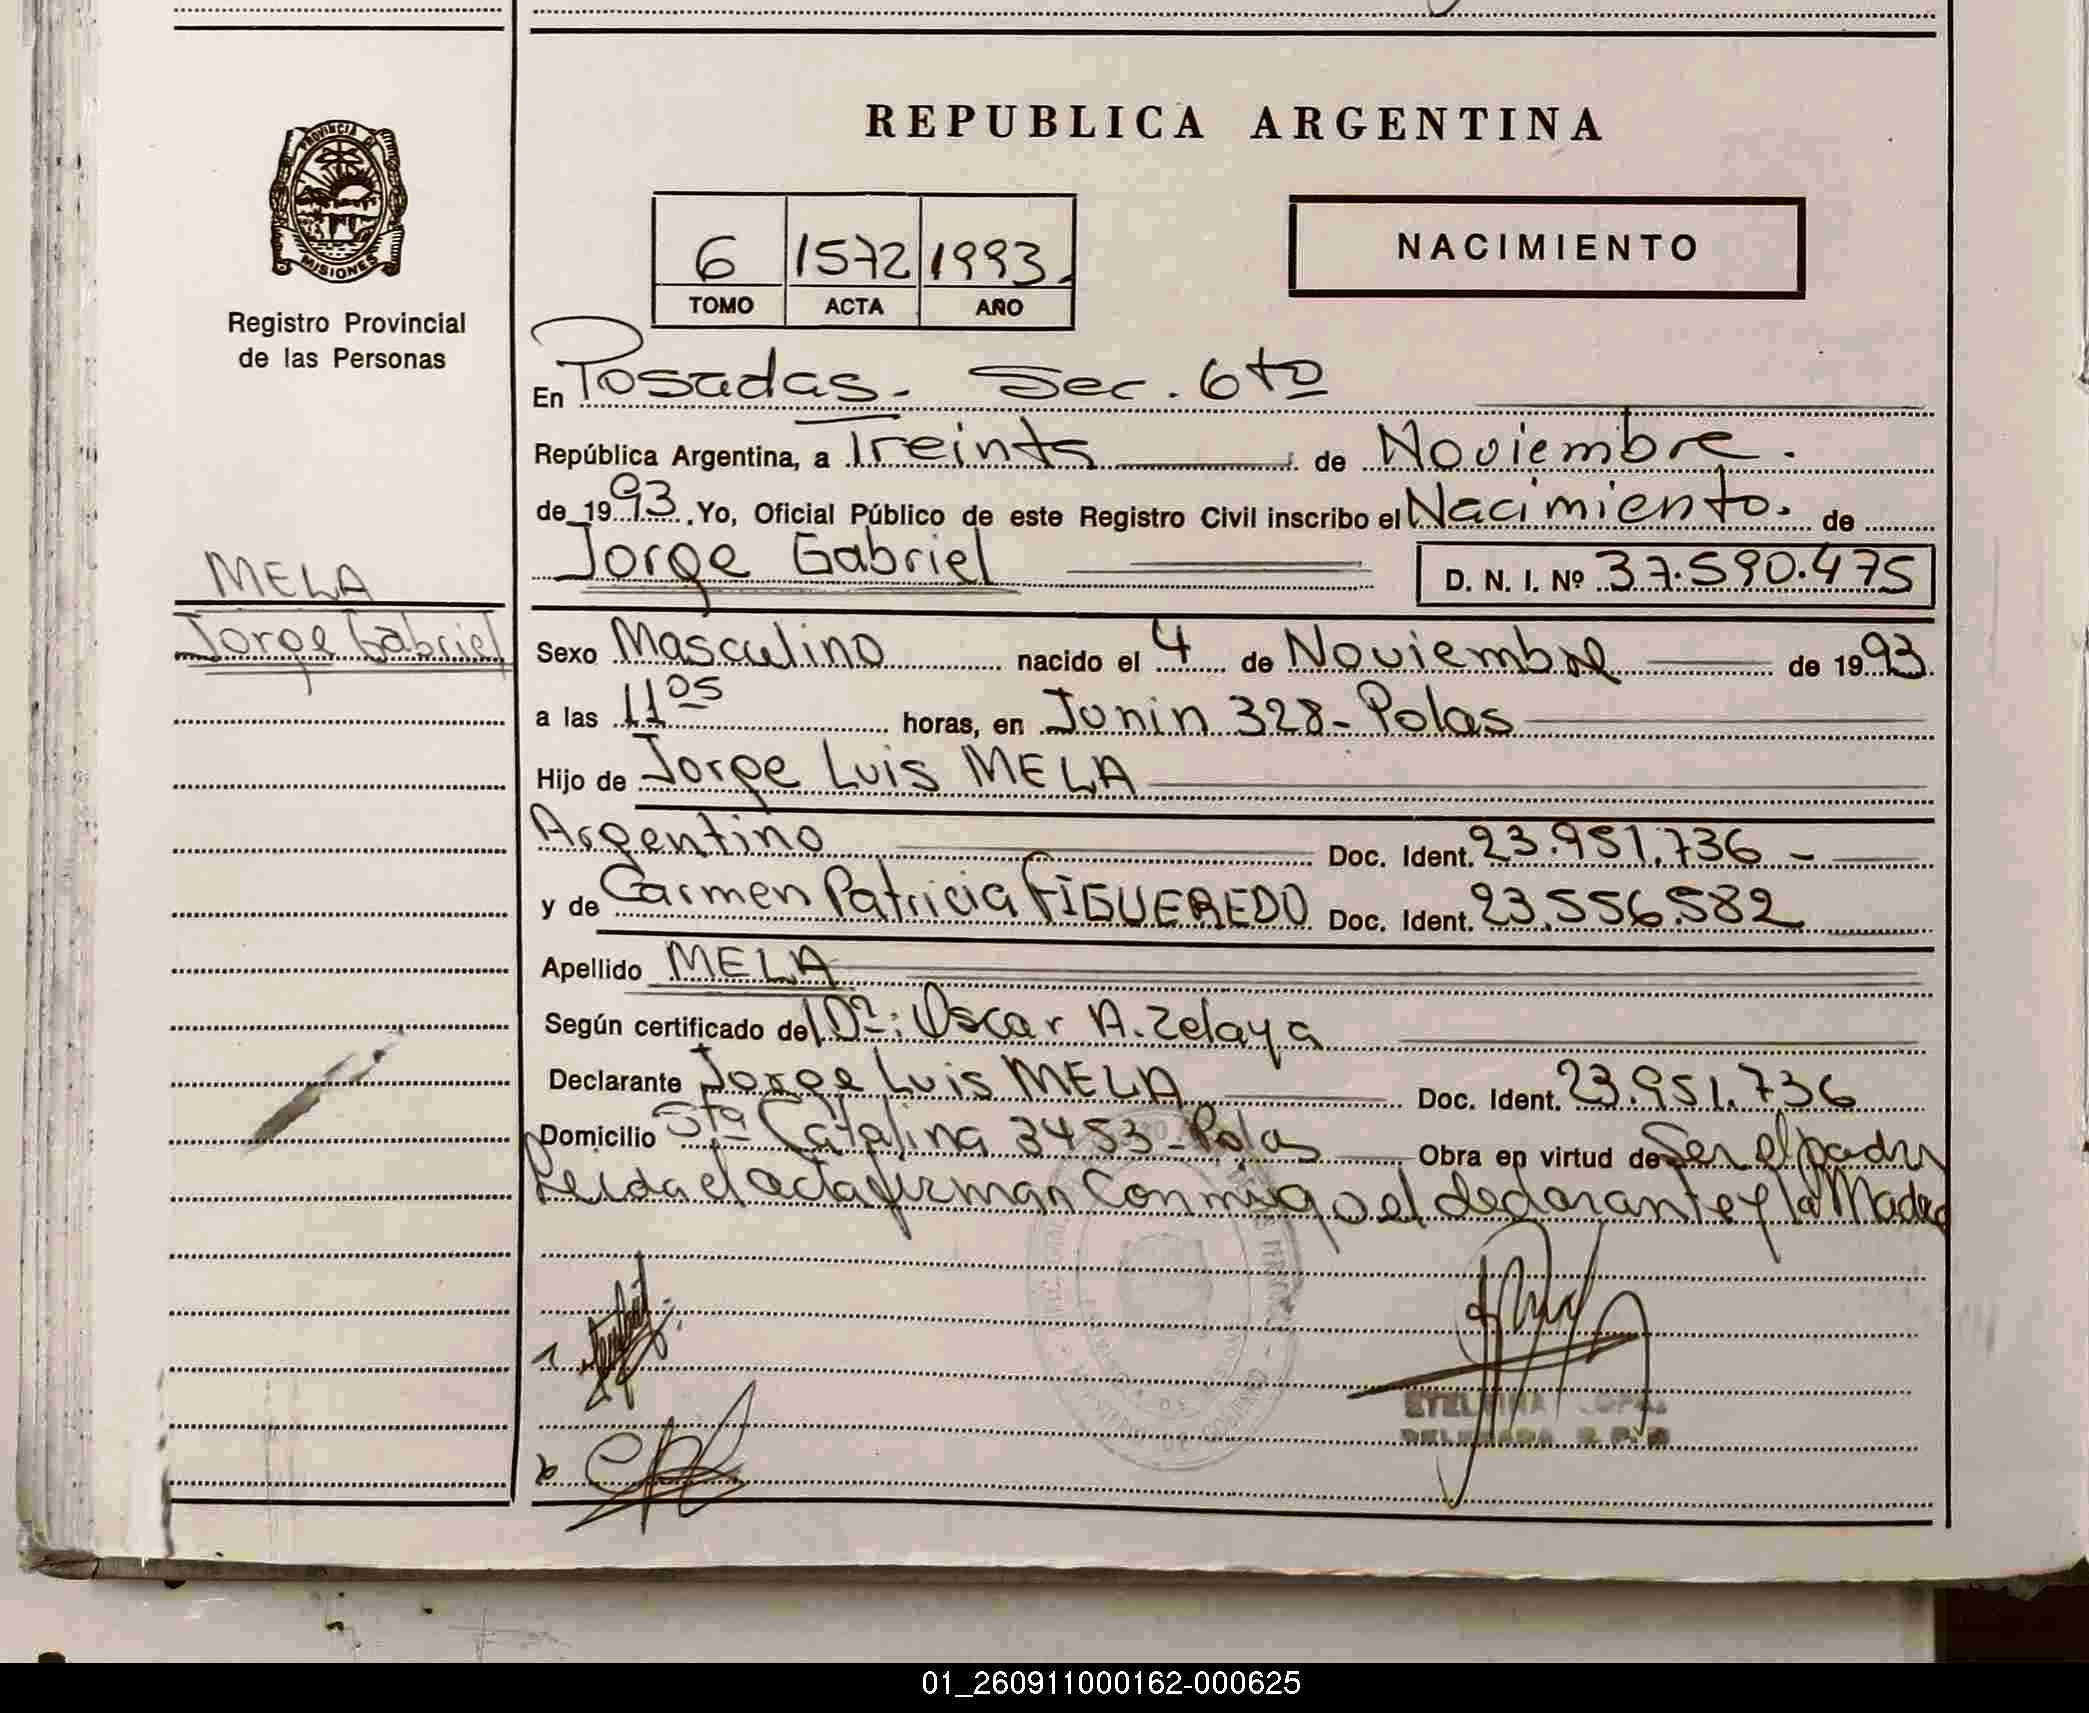 REPUBLICA ARGENTINA
PROVINCIA D
MISIONES
Registro Provincial
de las Personas
6 1572 1993.
TOMO ACTA AÑO
NACIMIENTO
En Posadas. Sec. 6to
República Argentina, a Treinta de Noviembre.
de 1993. Yo, Oficial Público de este Registro Civil inscribo el Nacimiento. de
Jorge Gabriel D. N. I. Nº 37.590.475
MELA
Jorge Gabriel
Sexo Masculino nacido el 4 de Noviembre de 1993.
a las 11 05 horas, en Junin 328-Pdas
Hijo de Jorge Luis MELA
Argentino Doc. Ident. 23.951.736 -
y de Carmen Patricia FIGUEREDO Doc. Ident. 23.556.582
Apellido MELA
Según certificado del Dr: Oscar A. Zelaya
Declarante Jorge Luis MELA Doc. Ident. 23.951.736
Domicilio Sta Catalina 3453-Pdas Obra en virtud de Ser el padre
Leida el acta firman conmigo el declarante y la Madre
01_260911000162-000625